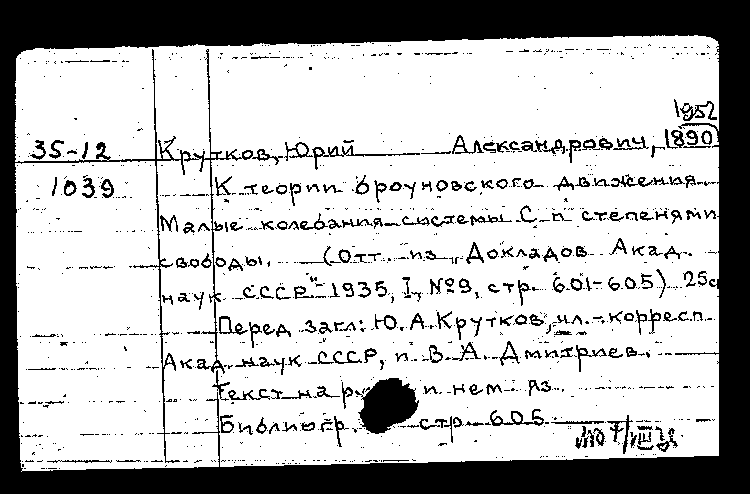 1952
35-12 Крутков, Юрий Александрович, 1890
1039 К теории броуновского движения.
Малые колебания системы С n степенями
свободы. (Отт. из „Докладов Акад.
наук СССР" 1935, I, №9, стр. 601-605) 25с
Перед загл: Ю. А. Крутков, чл.-корресп.
Акад. наук СССР, и В. А. Дмитриев.
Текст на ру и нем. яз.
Библиогр. стр. 605